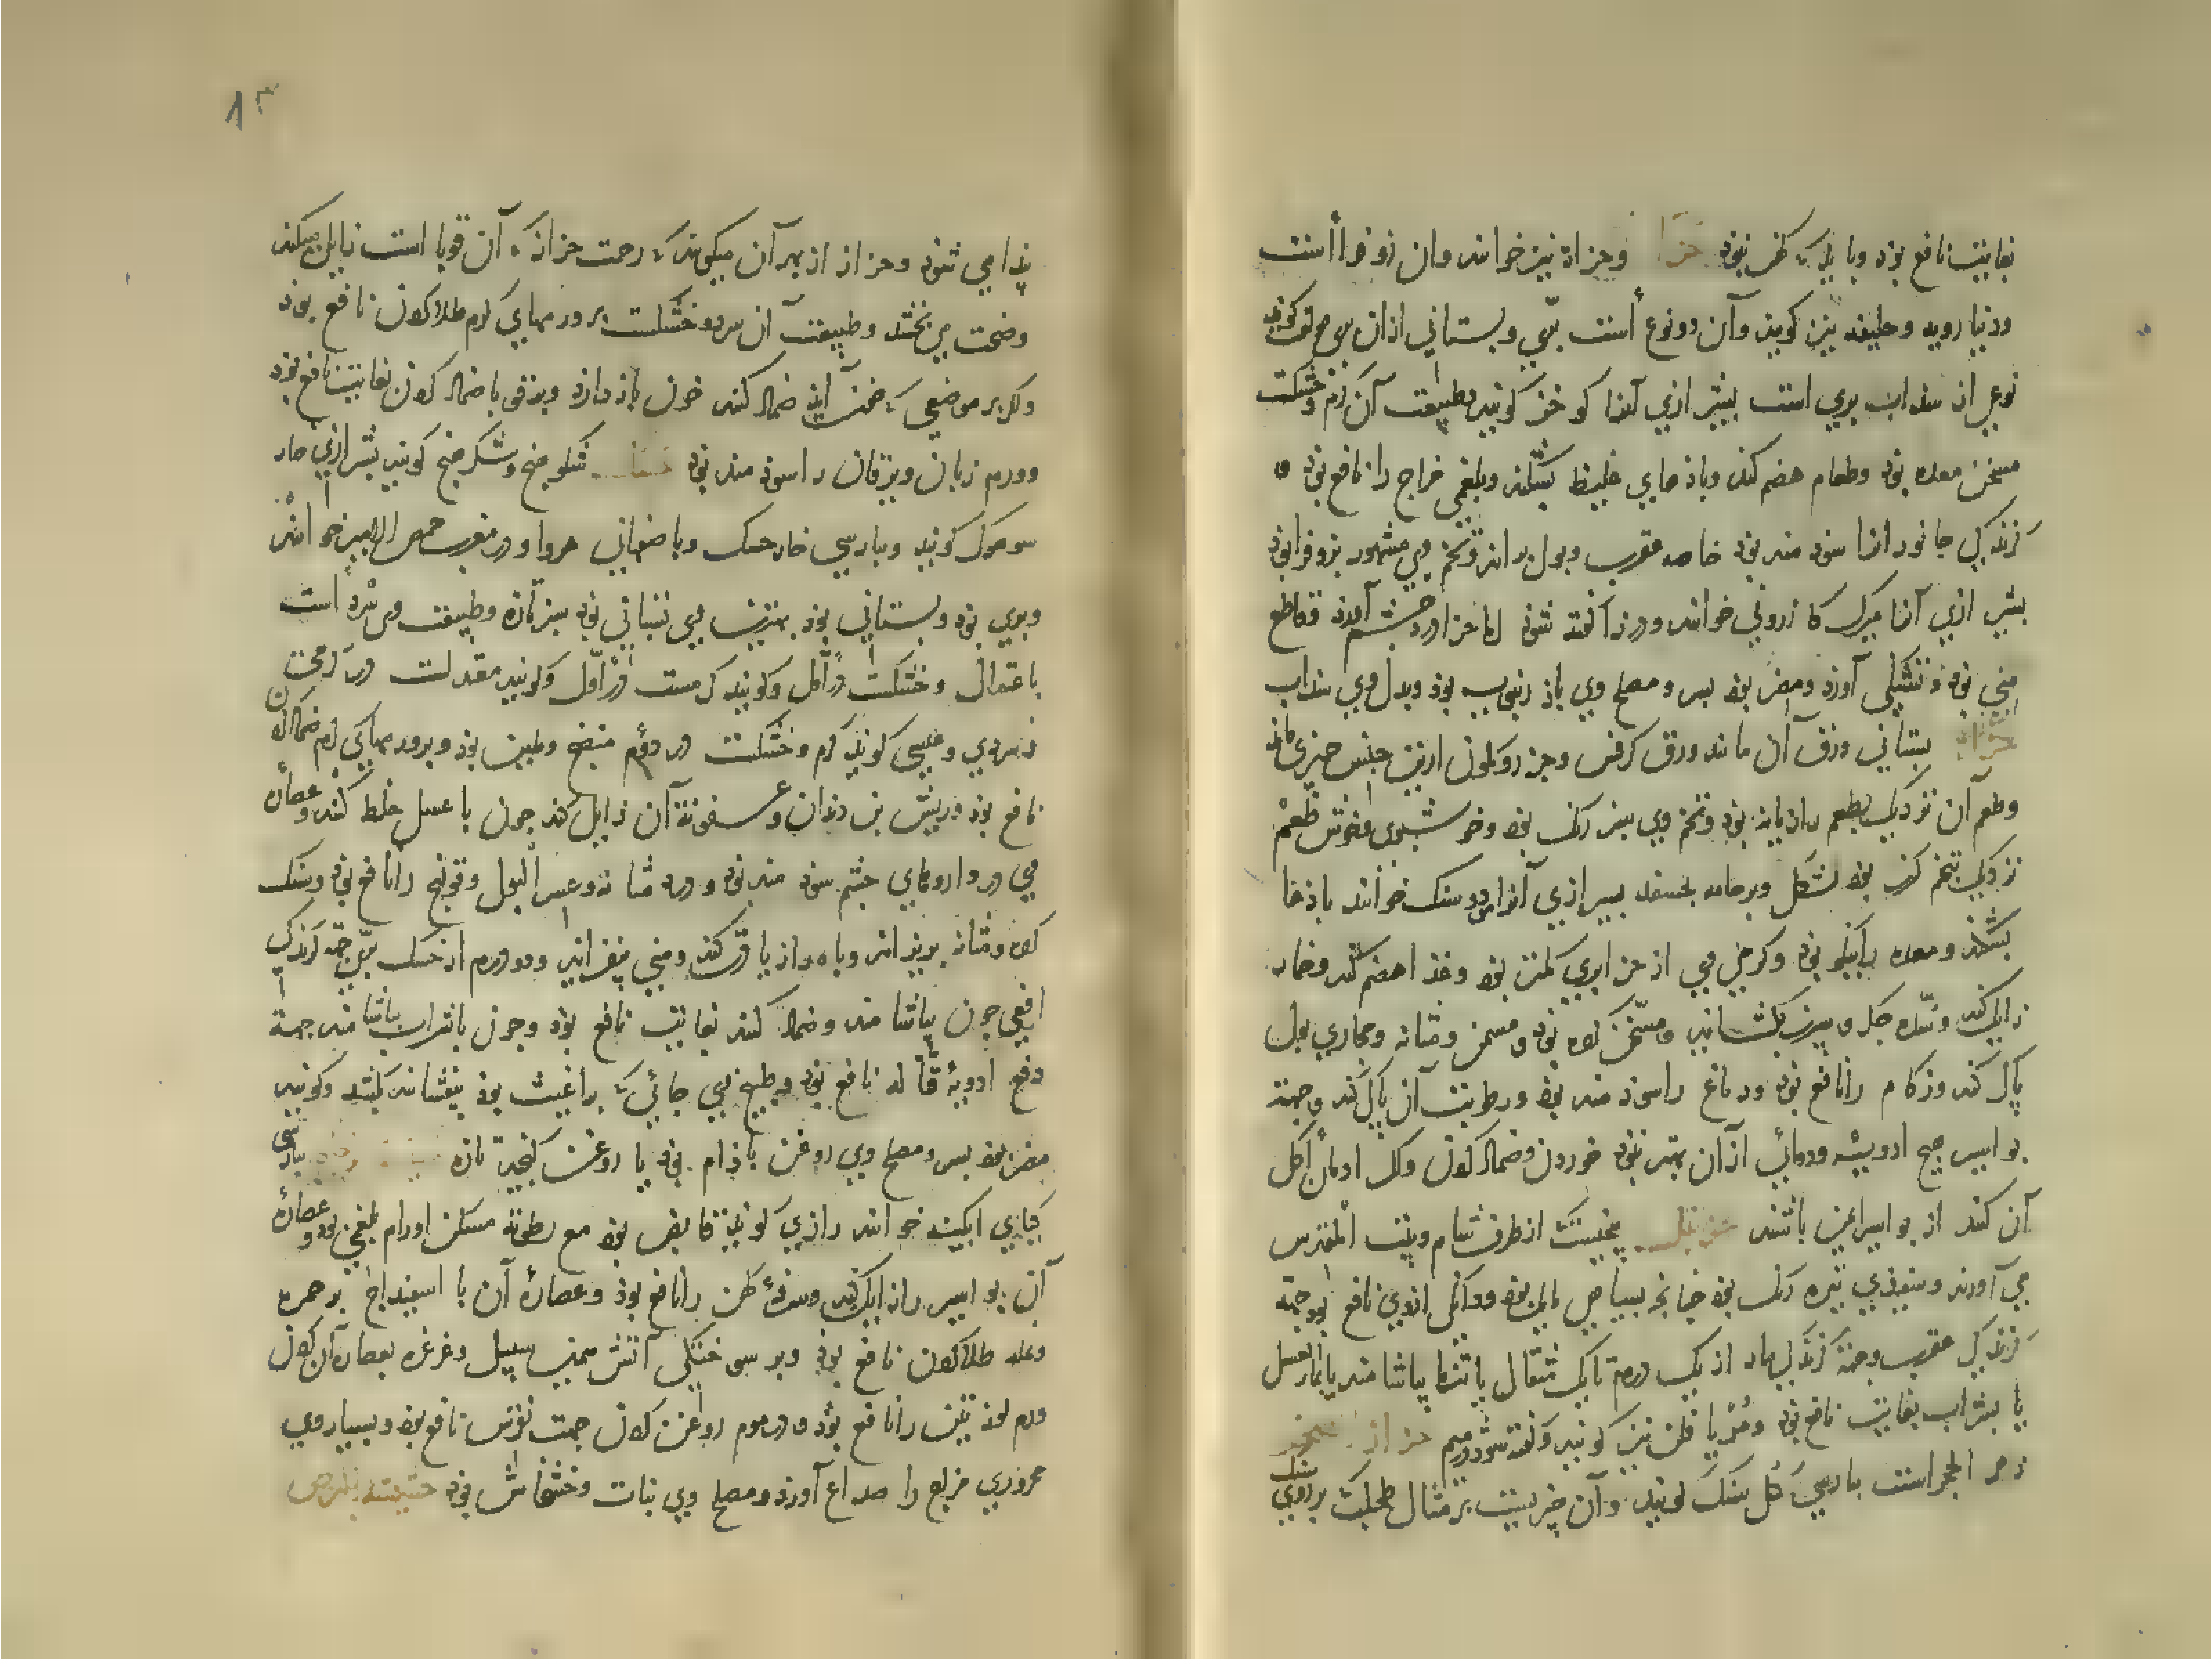 بغایت نافع بود و باید که کهن نبود حزا و حزاة نیز خوانند وان زوفرا است
ودنیا رویه وحلیفه نیز کویند وآن دو نوع است برّی و بستانی از آن بری
نوعی از سداب بری است بشیرازی آنرا کو خر کویند وطبیعت آن کرم وخشکست
مسخن معده بود وطعام هضم کند وباذهای غلیظ بشکند وبلغمی مزاج را نافع بود و
کزندکی جانورانرا سود مند بود خاصه عقرب وبول براند وتخم وی مشهور بزوفرا بود
بشیرازی آنرا کازرونی خوانند ودر ز آ کفته شود اما حزا درد چشم آورد وقاطع
منی بود و تشنکی آورد ومضر بود بسر ومصلح وی باذرنبویه بود وبدل وی سداب
حزاة بستانی ورق آن مانند ورق کرفس وجزر
وطعم آن نزدیک بطعم رازیانه بود وتخم وی سبز رنک بود وخوش بوی وخوش طعم
نزدیک بتخم کرفس بود بشکل بشیرازی آنرا خوانند باذها
بشکند ومعده را نیکو بود وی از حزا بری کمتر بود وغذا هضم کند وخمار
زایل کند وسدّه جکر وسپرز بکشاید ومسخّن کرده بود ومسمن ومثانه ومجاری بول
پاک کند وزکام را نافع بود ودماغ را سوذ مند بود ورطوبت آن پاک کند وجهت
بواسیر هیچ ادویه ودوائی از آن بهتر نبود خوردن وضماد کردن وکر ادمان اکل
آن کند از بواسیر ایمن باشند حزنبل بیخیست از طرف شام وبیت المقدس
می آورند وسفیذی تیره رنک بود چنانچه بسیاهی مایل بود ودانکی از وی نافع بود جهة
کزندکی عقرب وجهة کزندکی مار از یک درم تا یک مثقال یا تنها بیاشامند یا با عسل
یا بشراب بغایت نافع بود ومُرْیا فلن نیز کویند وکفته شود در میم حزاز الصخر
زهر الحجر است بارسی کل سنک کویند وآن چیزیست بر مثال طحلب بر روی سنک
۸۳
پیدا می شود وحزاز از بهر آن میکویند که زحمت حزاز که آن قوبا است زایل میکند
وصحت می بخشد وطبیعت آن سرد وخشکست بر ورمهای کرم طلا کردن نافع بود
وکر بر موضعی که خون آید ضماد کنند خون باز دارد وبرقی با ضماد کردن بغایت نافع بود
وورم زبان ویرقان را سود مند بود حسک شکوهنج وشکرهنج کویند بشیرازی خار
سوهوک کویند وبپارسی خارخسک وباصفهانی هروا ودر مغرب حمص الامیر خوانند
وبری بود وبستانی بود بهترین وی بستانی بود سبز تازه وطبیعت وی سرد است
باعتدال وخشکست در اوّل وکویند کرمست در اوّل وکویند معتدلست در کرمی
وسردی وعیسی کوید کرم وخشکست در دوّم منضج وملین بود وبر ورمهای کرم ضماد کردن
نافع بود وریش بن دندان وعفونة آن زایل کند چون با عسل خلط کنند وعصارهٔ
وی در داروهای چشم سود مند بود ودرد مثانه وعسر البول وقولنج را نافع بود وسنک
کرده ومثانه بریزاند وباه را زیادت کند ومنی بیفزاید ودو درم از خسک برّی جهة کزندکی
افعی چون بیاشامند وضماد کنند بغایت نافع بود وچون با شراب بیاشامند جهة
دفع ادویهٔ قتّاله نافع بود وطبیخ وی جائی که براغیث بود بیفشانند بکشد وکویند
مضر بود بسر ومصلح وی روغن باذام بود یا روغن کنجد تازه بپارسی
کیاهی ابکینه خوانند رازی کوید قابض بود مع رطوبة مسکن اورام بلغمی بود وعصارهٔ
آن بواسیر را زایل کند وسرفهٔ کهن را نافع بود وعصارهٔ آن با اسفیداج بر حمره
وعله طلا کردن نافع بود وبر سوختکی آتش همین سبیل وغرغره بعصارهٔ آن کردن
ورم لوزتین را نافع بود ودر موم روغن کردن جهت نقرس نافع بود وبسیار وی
محروری مزاج را صداع آورد ومصلح وی نبات وخشخاش بود